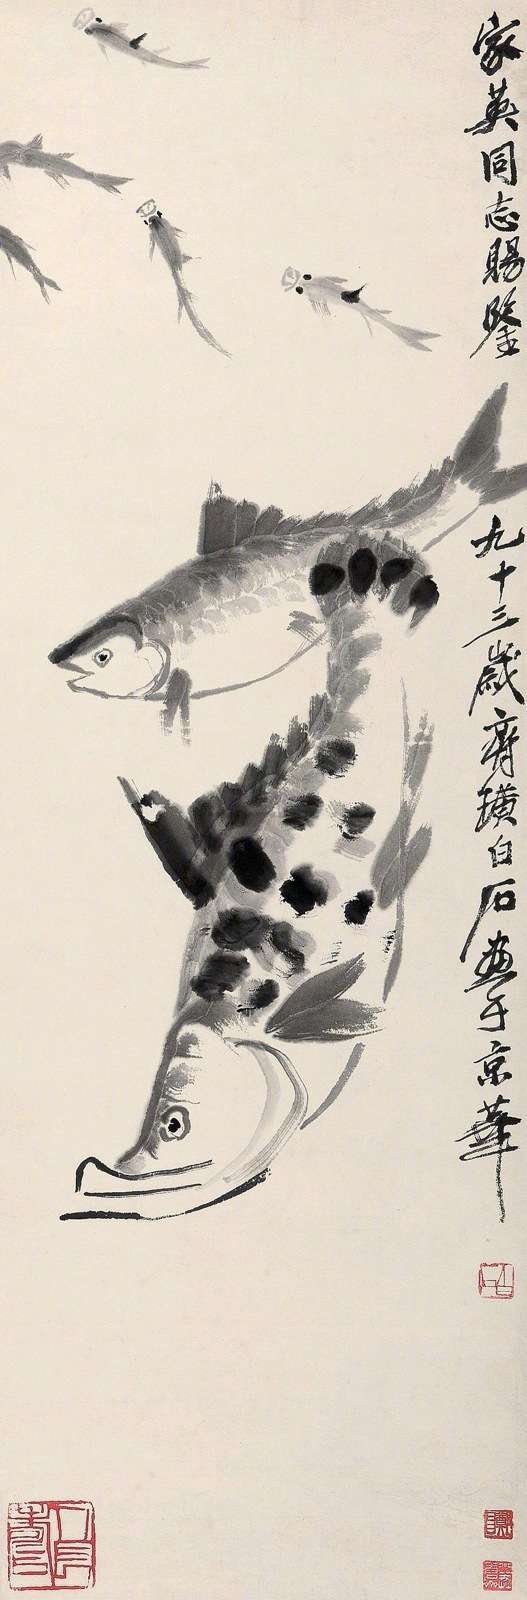 家英同志賜鑒
九十三歲齊璜白石畫于京華